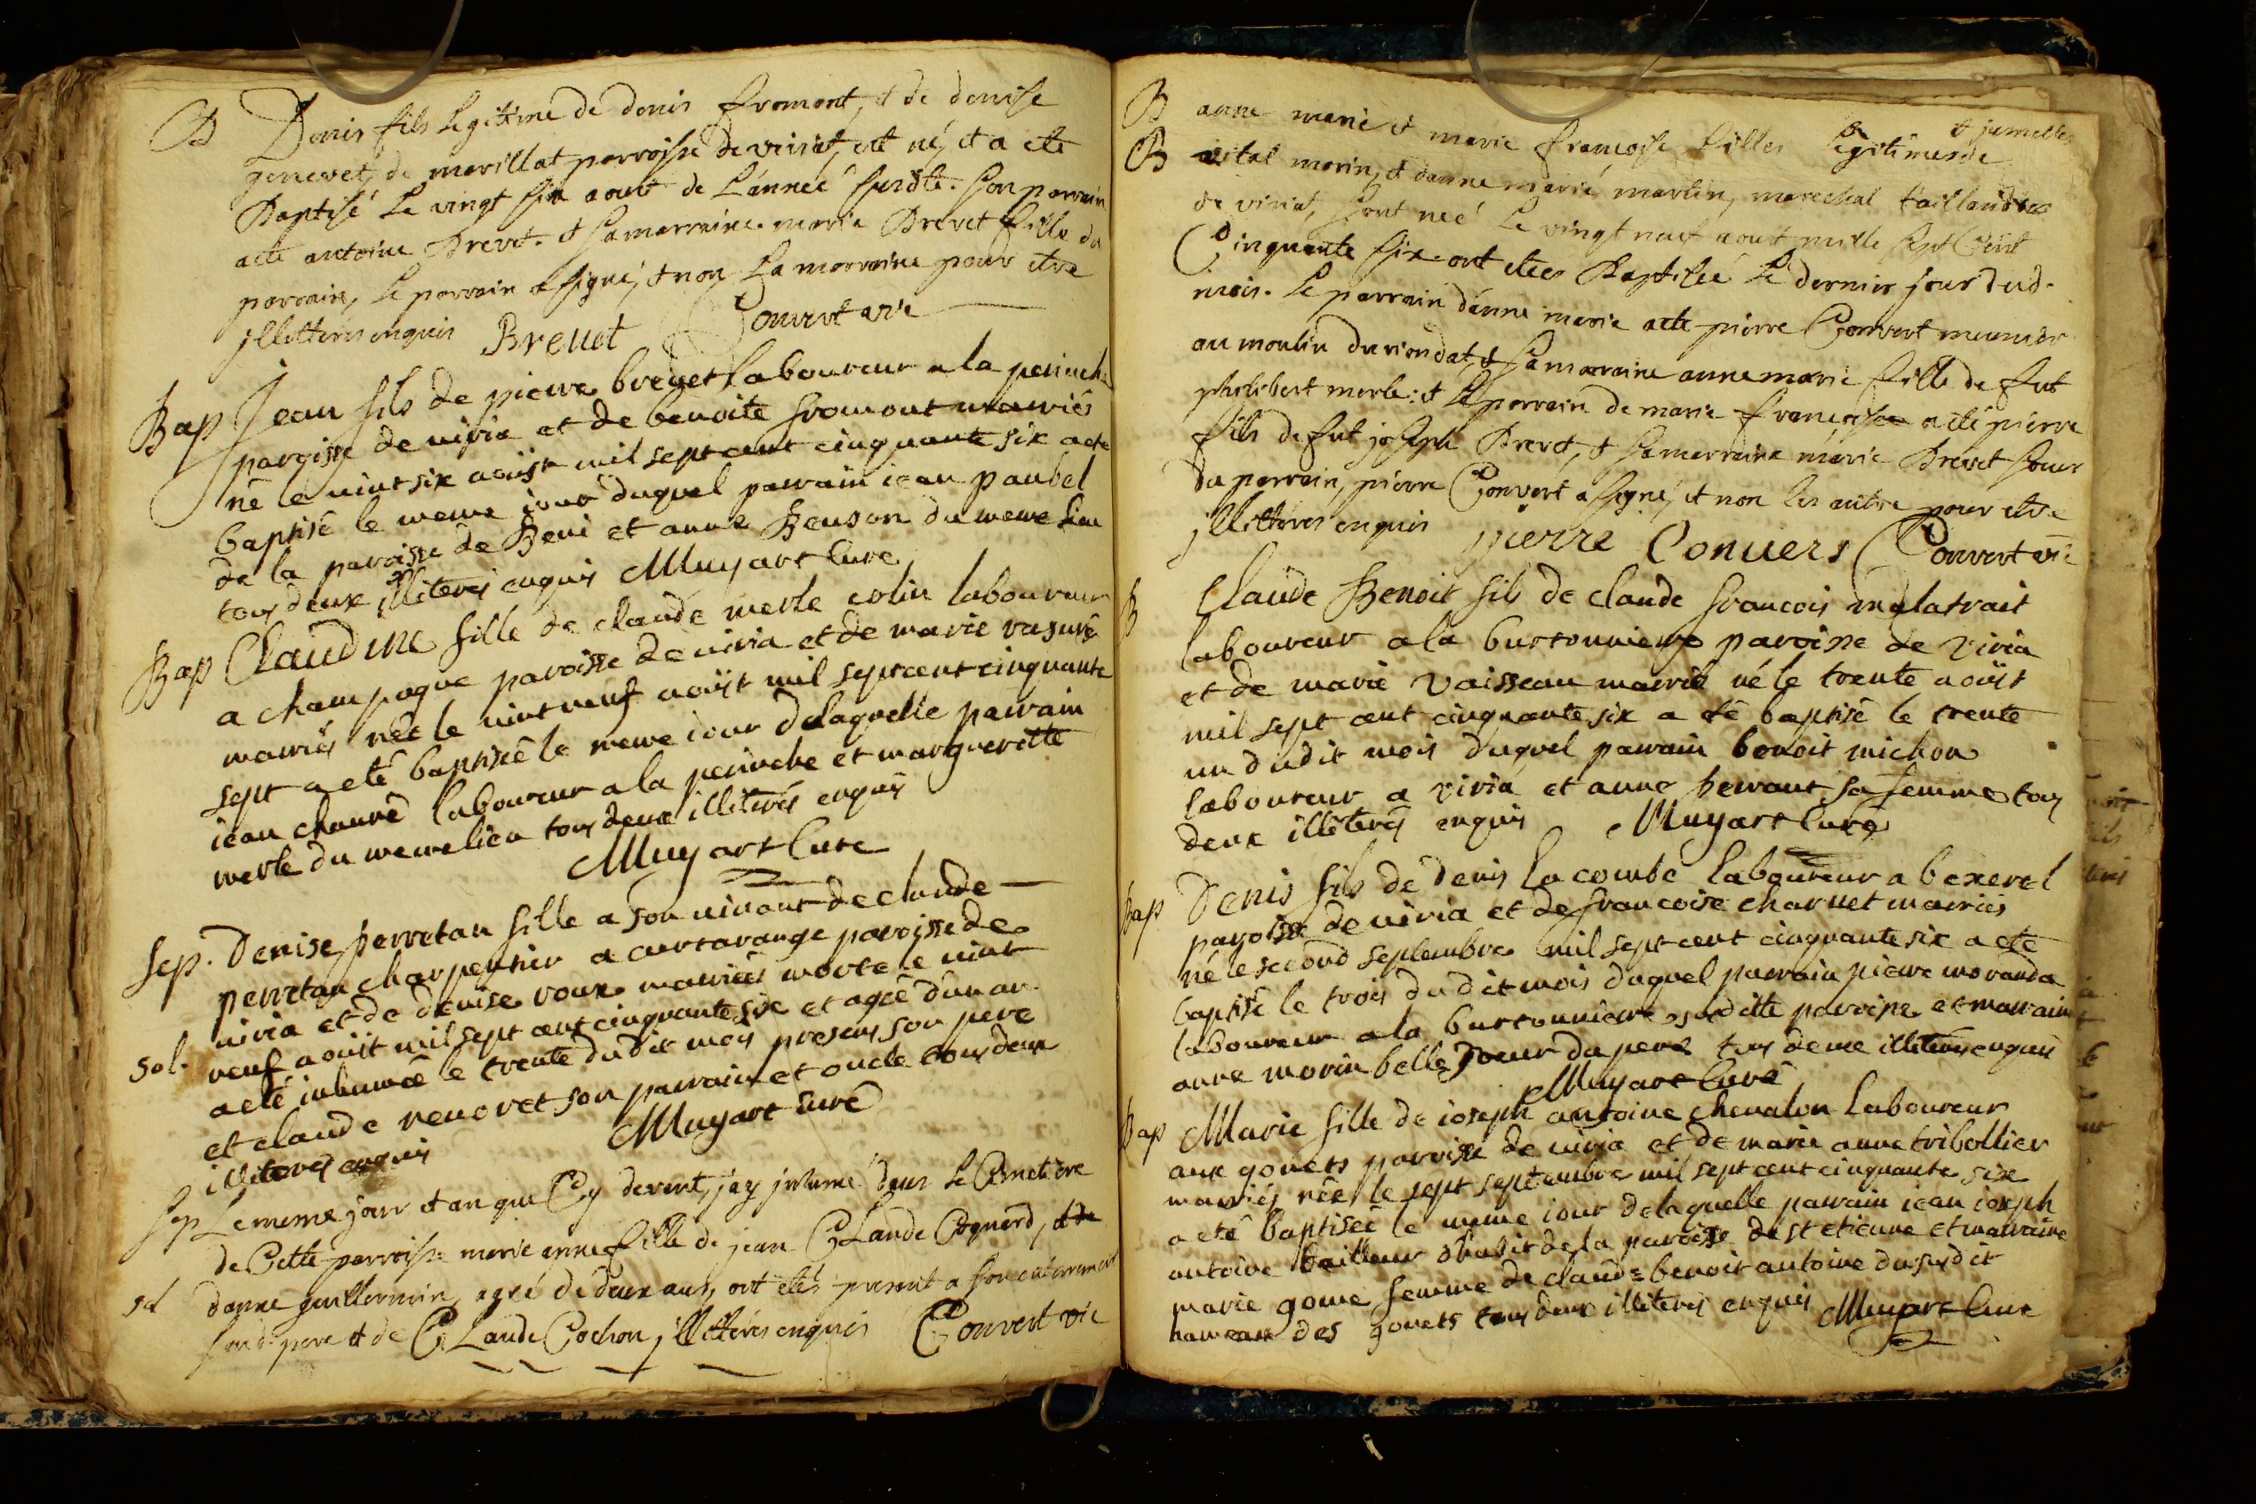 B Denis fils Legitime de denis fromont, et de denise
genevet, de marillat parroisse de viriat, est né, et a ete
Baptisé Le vingt six aout de L'année susdte. son parrain
aete antoine Brevet. et sa marraine. marie Brevet fille du
parrain, Le parrain a signé, et non La marraine pour etre
jllettérés enquis Brevet Convert vic
Bap Jean fils de pierre brevet laboureur a la perruche
paroisse de viria et de benoite fromont mariés
né le vint six aoûst mil sept cent cinquante six a eté
baptisé le meme jour duquel parrain iean paubel
de la paroisse de Beni et anne Benson du meme lieu
tous deux illiterés enquis Muyart Cure
Bap Claudine fille de claude merle colin laboureur
a champagne paroisse de viria et de marie vasuré
mariés née le vint neuf aoûst mil sept cent cinquante
sept a eté baptisée le meme iour delaquelle parrain
iean chauvé laboureur a la peruche et marguerite
merle du meme lieu tous deux illiterés enquis
Muyart Cure
Sep. Denise perretan fille a son vivant de claude
perretan charpentier a curtarange paroisse de
viria et de denise roux mariés morte le vint
Sol. neuf aoûst mil sept cent cinquante six et agée d'un an
a eté inhumée le trente dudit mois presens son pere
et claude renovet son parrain et oncle tous deux
illiterés enquis Muyart Curé
Sep Le meme jour et an que Cy devent, j'ay jnhumé dans Le Cimetiere
de Cette parroisse marie anne fille de jean CLaude Cognard, et de
Sol danne guillermin, agée de deux ans, ont étés present a son enterrement
sond. pere et de CLaude Cochon jllettérés enquis Convert vic
B anne marie et marie francoise filles Legitimes et jumelles de
B vital morin, et danne marie martin, marechal taillandier
de viriat, sont neé Le vingt neuf aout mille sept Cent
Cinquante six. ont etees Baptisée Le dernier jour dud.
mois. Le parrain d'anne marie aete pierre Convert meunier
au moulin du riondat, et sa marraine anne marie fille de fut
philibert merle: et Le parrain de marie francoise a eté pierre
fils de fut joseph Brevet, et sa marraine marie Brevet soeur
du parrain, pierre Convert a signé, et non les autre pour etre
jllettérés enquis pierre Conuers Convert vic
B Claude Benoit fils de claude francois malatrait
laboureur a la burtonniere paroisse de viria
et de marie vaisseau mariés né le trente aoûst
mil sept cent cinquante six a eté baptisé le trente
un dudit mois duquel parrain benoit michon
laboureur a viria et anne perrant sa femme tous
deux illiterés enquis Muyart Cure
Bap Denis fils de Denis la combe laboureur a bexerel
paroisse de viria et de francoise charnet mariés
né le second septembre mil sept cent cinquante six a eté
baptisé le trois dudit mois duquel parrain pierre moranda
laboureur a la burtonniere susditte paroisse et marraine
anne morin belle soeur du pere tous deux illiterés enquis
Muyart Curé
Bap Marie fille de ioseph antoine chevalon laboureur
aux gouets paroisse de viria et de marie anne tribollier
mariés née le sept septembre mil sept cent cinquante six
a eté baptiseé le meme iour delaquelle parrain iean ioseph
antoine tailleur d'habit de la paroisse de st etienne et marraine
marie goune femme de claude benoit antoine du susdit
hameau des gouets tous deux illiterés enquis Muyart Cure